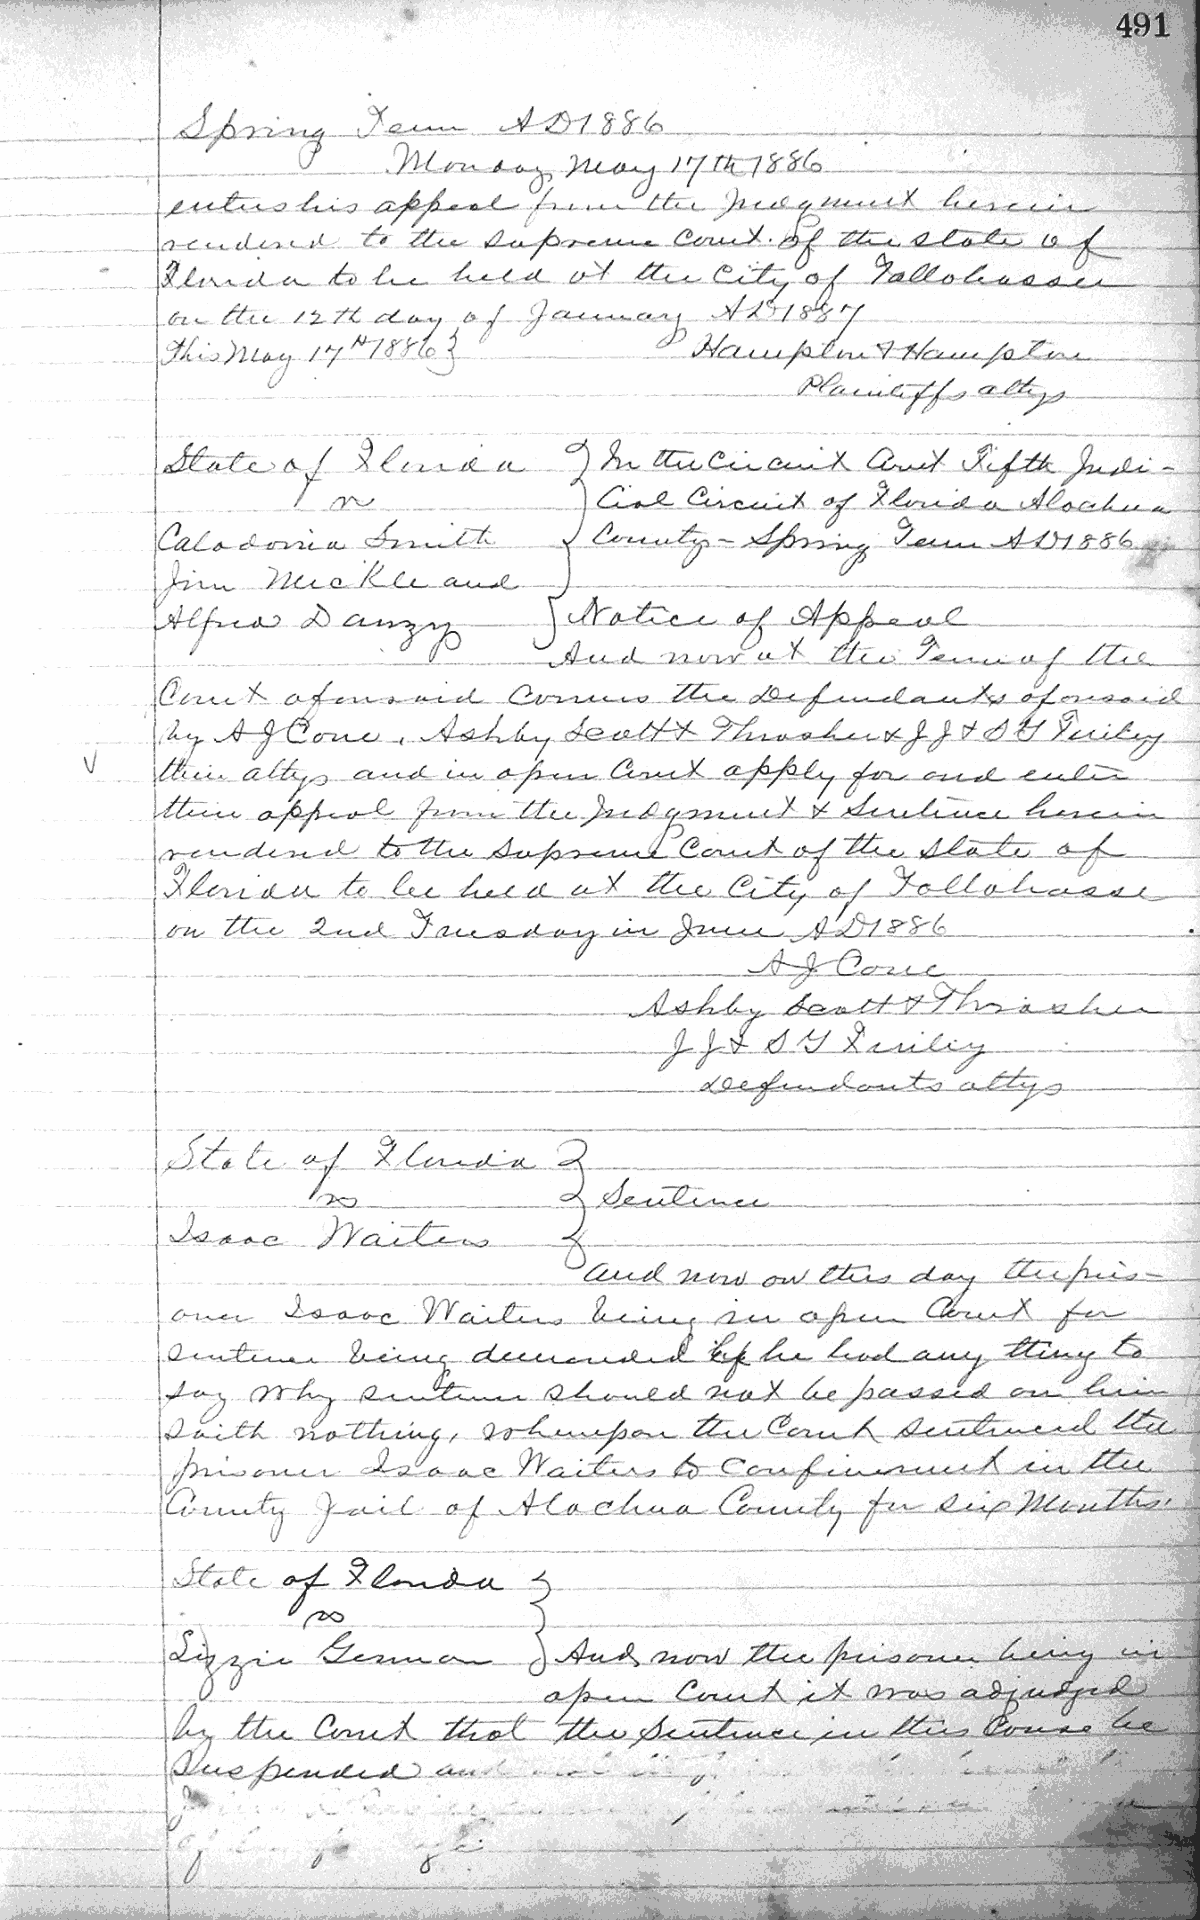 491
Spring Term AD 1886
Monday May 17th 1886
enters his appeal from the Judgment herein
rendered to the Supreme Court of the State of
Florida to be held at the City of Tallahassee
on the 12th day of January AD 1887
This May 17th 1886 }
Hampton & Hampton
Plaintiffs attys
State of Florida } In the Circuit Court Fifth Judi-
vs } cial Circuit of Florida Alachua
Caladonia Smith } County - Spring Term AD 1886
Jim McKle and
Alfred Danzy } Notice of Appeal
And now at the Term of the
Court aforesaid comes the Defendants aforesaid
by A J Cone, Ashby Scott & Thrasher & J J & S Y Finley
their attys and in open Court apply for and enter
their appeal from the Judgment & Sentence herein
rendered to the Supreme Court of the State of
Florida to be held at the City of Tallahasse
on the 2nd Tuesday in June AD 1886
A J Cone
Ashby Scott & Thrasher
J J & S Y Finley
Defendants attys
State of Florida }
vs } Sentence
Isaac Waiters }
And now on this day the pris-
oner Isaac Waiters being in open Court for
sentence being demanded if he had any thing to
say why sentence should not be passed on him
saith nothing, whereupon the Court sentenced the
prisoner Isaac Waiters to confinement in the
County Jail of Alachua County for six Months.
State of Florida }
vs }
Lizzie German } And now the prisoner being in
open Court it was adjudged
by the Court that the Sentence in this Cause be
Suspended and